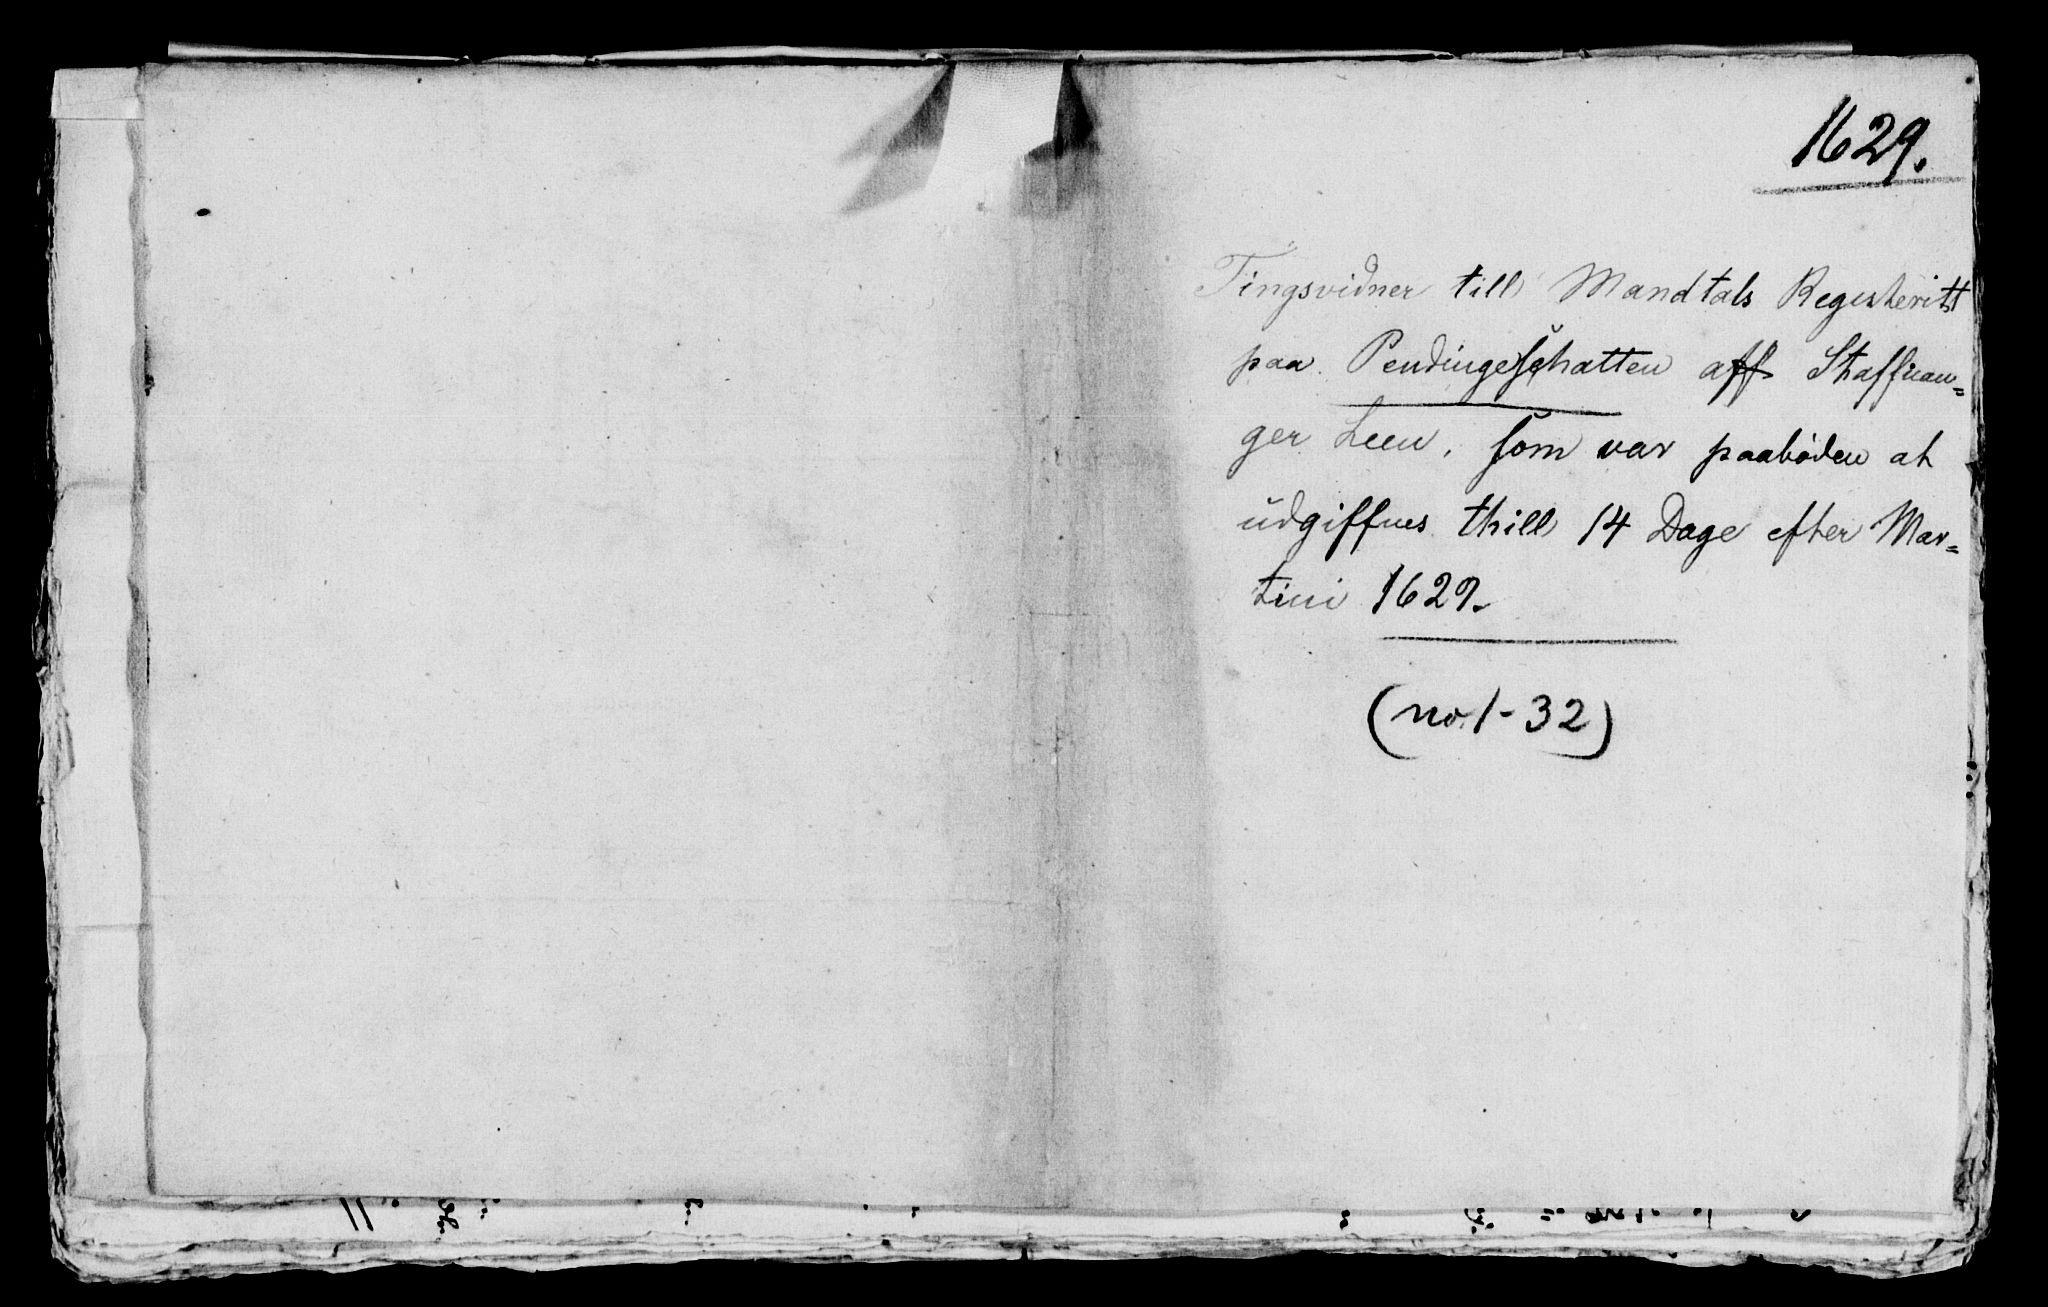 1629.
Tingsvidner till Mandtals Registeritt
paa Pendingeschatten aff Staffuan=
ger Leen, som var paabøden at
udgiffues thill 14 Dage efter Mar=
tini 1629.
(no. 1-32)